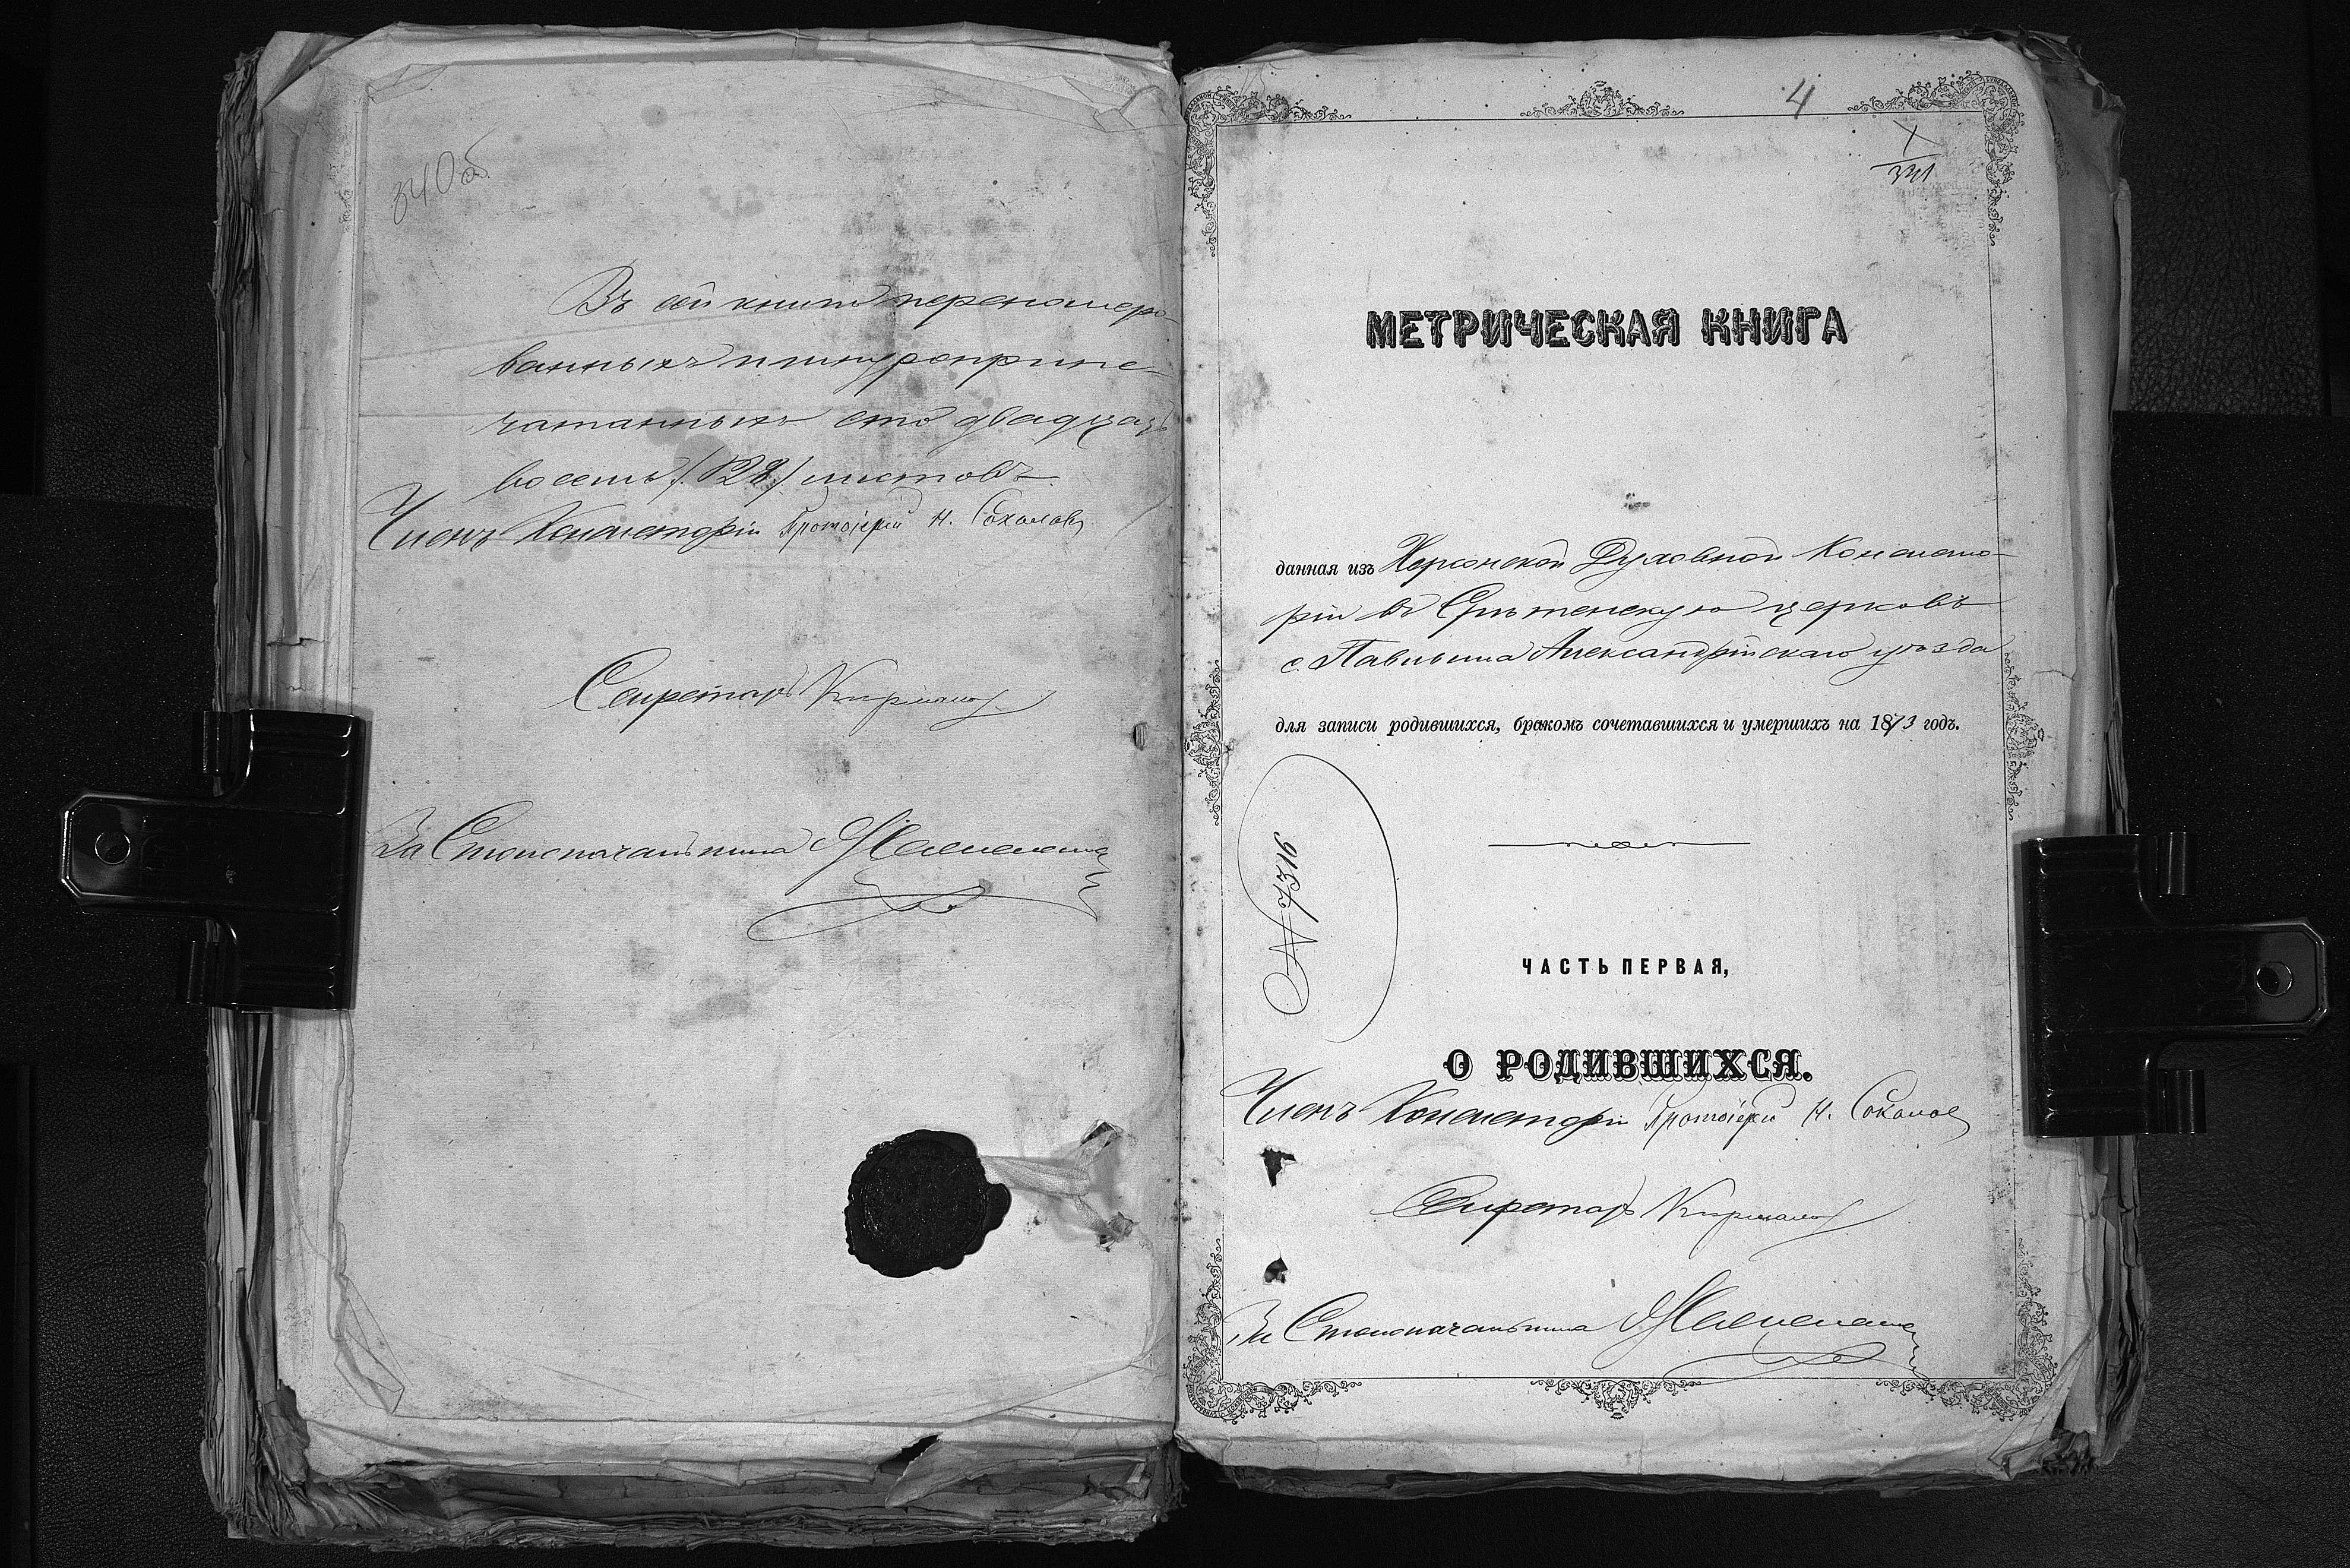 340об.
Въ сей книгѣ перенумеро-
ванныхъ шнуроприпе-
чатанныхъ сто двадцать
восемь /128/ листовъ
Членъ Консисторіи Протоіерей Н. Соколовъ
Секретарь
За Столоначальника
4
341
МЕТРИЧЕСКАЯ КНИГА
данная изъ Херсонской Духовной Консисто-
ріи въ Срѣтенскую церковь
с. Павлыша Александрійскаго уѣзда
для записи родившихся, бракомъ сочетавшихся и умершихъ на 1873 годъ.
№ 7316
ЧАСТЬ ПЕРВАЯ,
О РОДИВШИХСЯ.
Членъ Консисторіи Протоіерей Н. Соколовъ
Секретарь
За Столоначальника